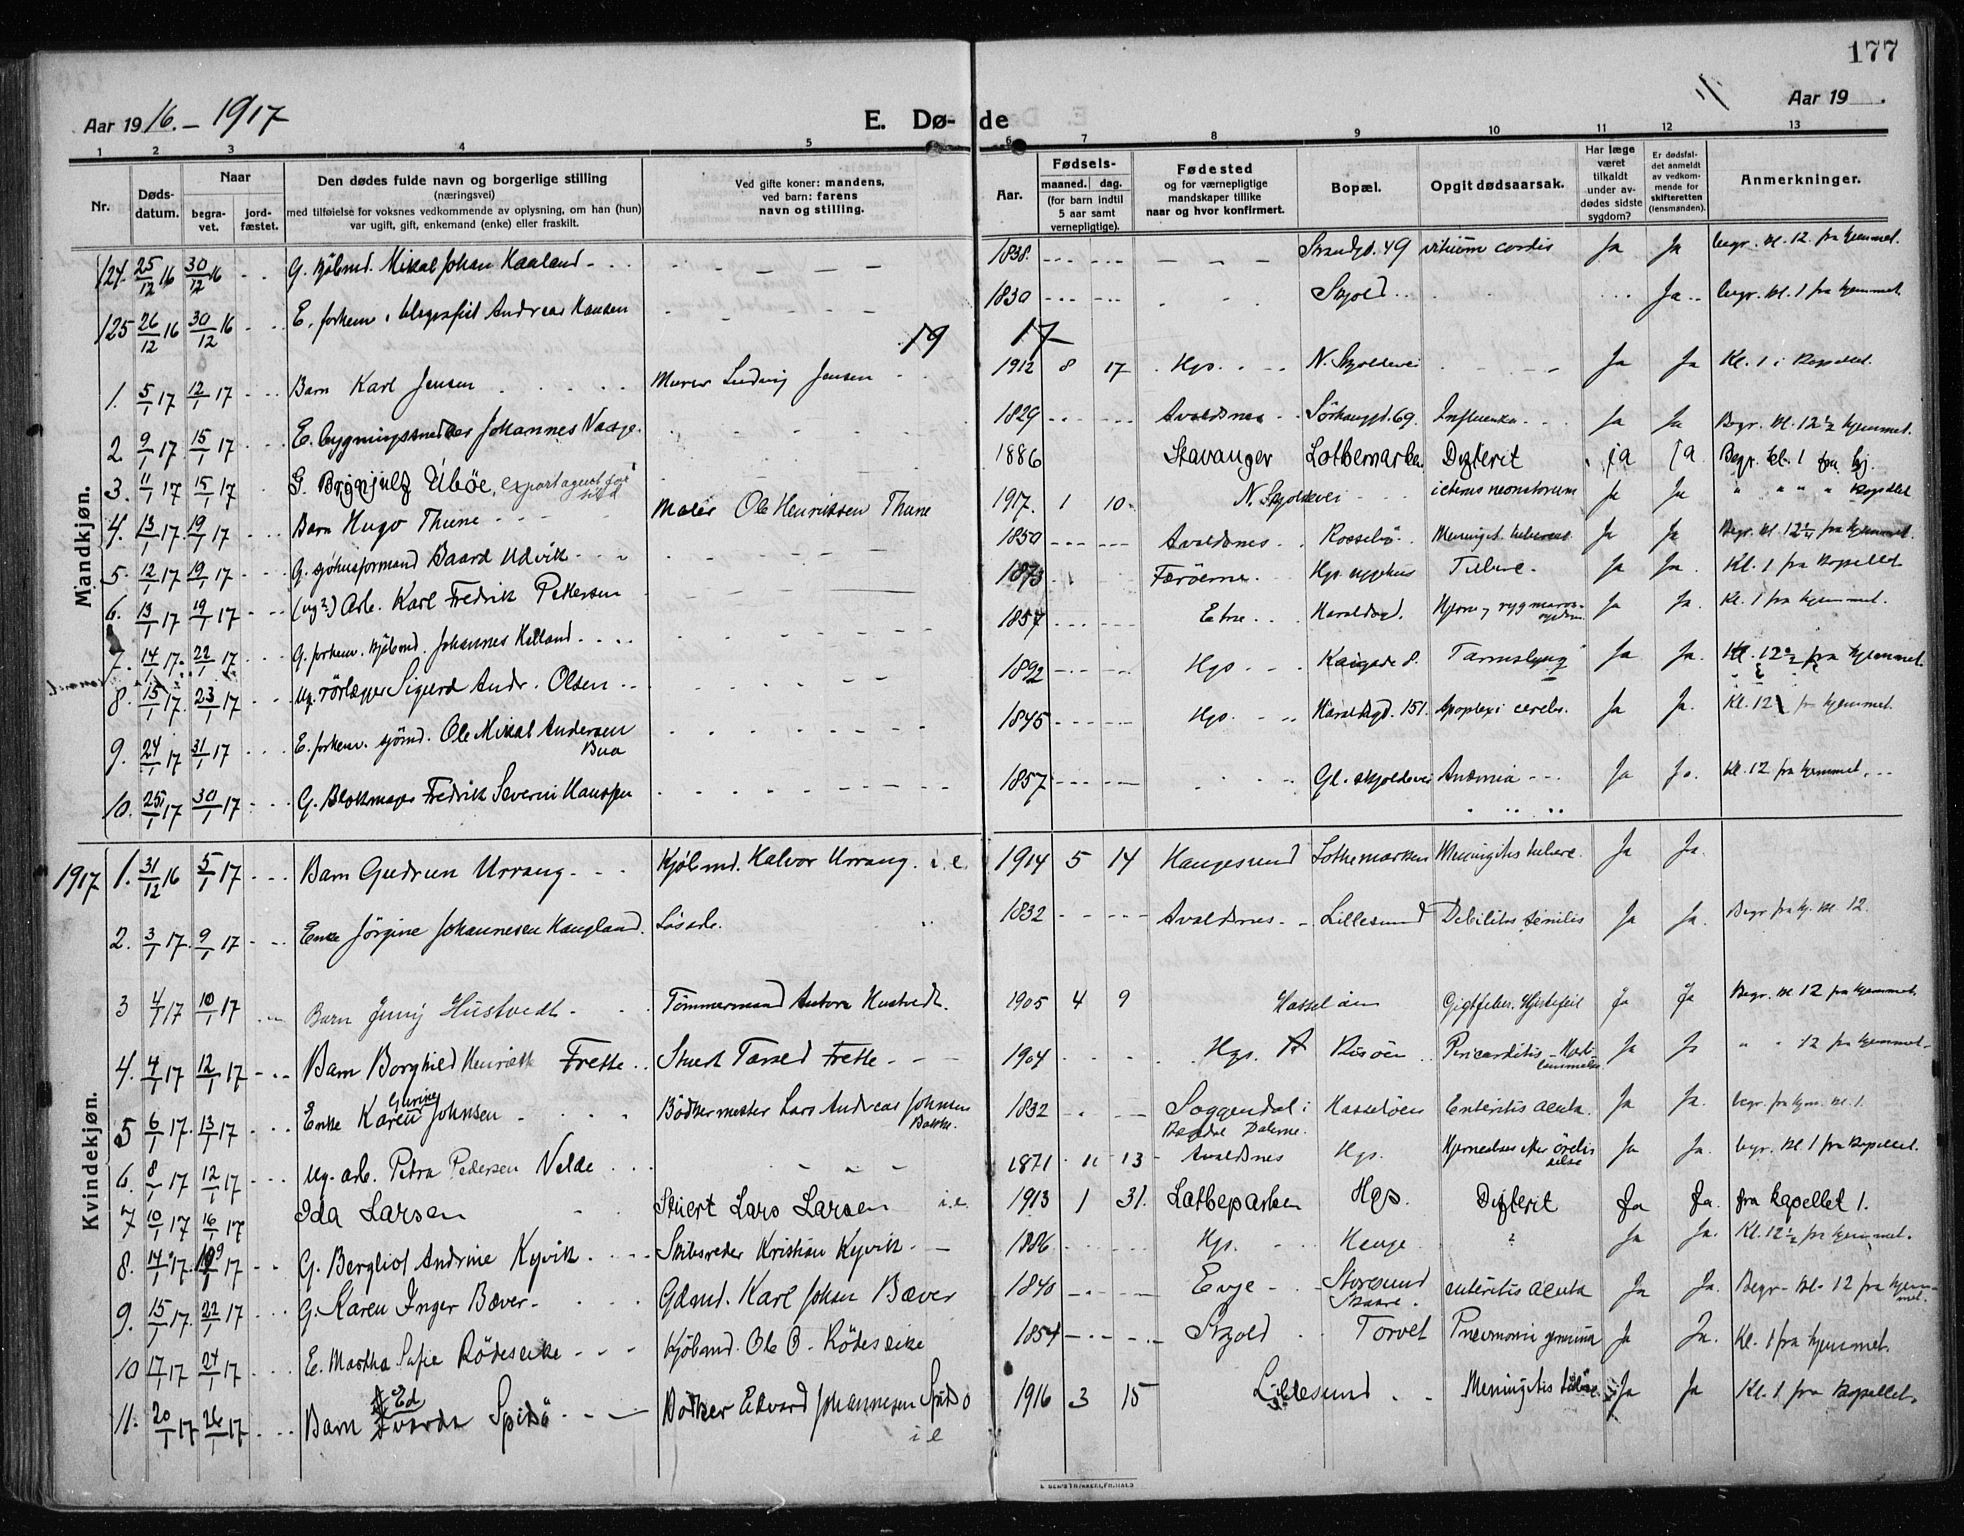 177
Aar 1916. – 1917
E. Dø- de
Aar 19
1 2 3 4 5 6 7 8 9 10 11 12 13
Nr.
Døds-datum.
Naar
begra-vet.
jord-fæstet.
Den dødes fulde navn og borgerlige stilling
(næringsvei)
med tilføielse for voksnes vedkommende av oplysning, om han (hun)
var ugift, gift, enkemand (enke) eller fraskilt.
Ved gifte koner: mandens,
ved barn: farens
navn og stilling.
Aar.
Fødsels-
maaned. dag.
(for barn indtil
5 aar samt
vernepligtige).
Fødested
og for værnepligtige
mandskaper tillike
naar og hvor konfirmert.
Bopæl.
Opgit dødsaarsak.
Har læge
været
tilkaldt
under av-
dødes sidste
sygdom?
Er dødsfal-
det anmeldt
av vedkom-
mende for
skifteretten
(lensmanden).
Anmerkninger.
Mandkjøn.
124. 25/12 16 30/12 16 G. Kjøbmd. Mikal Johan Haaland 1838. Strandgd. 49 vitium cordis Ja Ja begr. kl. 12 fra hjemmet.
125 26/12 16 30/12 16 E. forhenv. telegrafist Andreas Hansen 1830 Skjold Ja begr. kl. 1 fra hjemmet.
19 17
1. 5/1 17 12/1 17 Barn Karl Jensen Murer Ludvig Jensen 1912 8 17 Hgs. N. Skjoldevei Ja Ja Kl. 1 i kapellet.
2 9/1 17 15/1 17 E. bygningssnedker Johannes Vaage. 1829 Avaldsnes Sørhauggt. 69. Influenza Ja Ja Begr. kl. 12 1/2 hjemmet.
3. 11/1 17 15/1 17 G. Brynjulf Ubøe, exportagent for sild 1886 Stavanger Lothemarken Difterit ja ja Begr. kl. 1 fra hj.
4. 13/1 17 19/1 17 Barn Hugo Thune Maler Ole Henriksen Thune 1917. 1 10. N. Skjoldevei icterus neonatorum Ja Ja " " " " Kapellet
5. 12/1 17 19/1 17 G. sjøhusformand Baard Udvik 1850 Avaldsnes Rossebø Meningit. tubercul. Ja Ja Begr. kl. 12 1/2 fra hjemmet.
6. 13/1 17 19/1 17 (ug?) Arb. Karl Fredrik Pettersen 1873 Færøerne Hgs. sygehus Tuberc. Ja Ja. Kl. 1 fra Kapellet
7. 14/1 17. 22/1 17 G. forhenv. Kjøbmd. Johannes Helland 1857 Etne Haraldsgd. Hjerne og rygmarvs-sygdom Ja Ja. Kl. 1 fra hjemmet.
8. 15/1 17. 23/1 17 Ug. rørlægger Sigurd Andr. Olsen 1892 Hgs Kaigade 8. Tarmslyng Ja Ja. Kl. 12 1/2 fra hjemmet.
9. 24/1 17 31/1 17 E. forhenv. sjømd. Ole Mikal Andersen Bua 1845 Hgs. Haraldsgd. 151. Apoplexi cerebr. Ja Ja. Kl. 12 fr hjemmet.
10. 25/1 17 30/1 17 G. Blokmager Fredrik Severin Hanssen 1857 Gl. Skjoldevei Anæmia Ja Ja. Kl. 12 fra hjemmet.
Kvindekjøn.
1917 1. 31/12 16 5/1 17 Barn Gudrun Urrang Kjøbmd. Halvor Urrang. i. e. 1914 5 14 Haugesund Lothemarken Meningitis tuberc. Ja Ja.
2. 3/1 17. 9/1 17 Enke Jørgine Johannesen Haugland Løsarb. 1832 Avaldsnes Lillesund Debilitas senilis Ja Ja. Begr fra hj. kl. 12.
3 4/1 17 10/1 17 Barn Jenny Hustvedt Tømmermand Hustvedt. 1905 4 9 Hasseløen Gigtfeber. Hjertefeil Ja Ja Begr. kl 12 fra hjemmet.
4. 4/1 17 12/1 17 Barn Borghild Henriette Frette Stuert Tarald Frette 1904 Hgs. Risøen Pericarditis Ja Ja " " 12 fra hjemmet
5 6/1 17. 13/1 17 Enke Karen Gurine Johnsen Bødkermester Lars Andreas Johnsen Bakke. 1832 Soggendal i Dalerne. Hasseløen Enteritis acuta. Ja Ja begr. fra hjem. kl. 1.
6. 8/1 17 12/1 17 Ug. arb. Petra Pedersen Velde 1871 11 13 Avaldsnes Hgs. Ja Ja. begr. kl 1 fra kapellet.
7 10/1 17 16/1 17 Ida Larsen Stuert Lars Larsen i.e. 1913 1 31. Lotheparken Hgs. Difterit Ja Ja. fra kapellet 1.
8. 14/1 17. 19/1 17 G. Bergliot Andrine Kyvik Skibsreder Kristian Kyvik 1886 Hgs. Hauge ? Ja Ja. Kl. 12 1/2 fra hjemmet.
9. 15/1 17. 22/1 17 G. Karen Inger Bæver Gdmd. Karl Johan Bæver 1840 Evje Storesund Skaare. enteritis acuta Ja Ja. Begr. kl. 12 fra hjemmet.
10 17/1 17 24/1 17 E. Martha Sofie Rødeseike Kjøbmd. Ole O. Rødeseike 1854 Skjold Torvet Pneumoni Ja Ja. Kl. 1 fra hjemmet.
11. 20/1 17 26/1 17 Barn Edvarda Spidsø Bødker Edvard Johannesen Spidsø i e 1916 3 15 Lillesund Meningitis tuberc. Ja Ja Kl. 1 fra Kapellet.